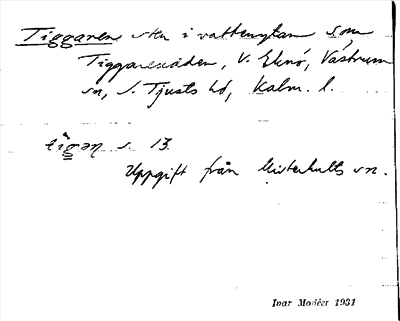 Tiggaren sten i vattenytan som
Tiggareudden, V. Eknö, Västrum
sn, S. Tjusts hd, Kalm. l.
tigaṇ s. 13
Uppgift från Misterhults sn.
Ivar Modéer 1931